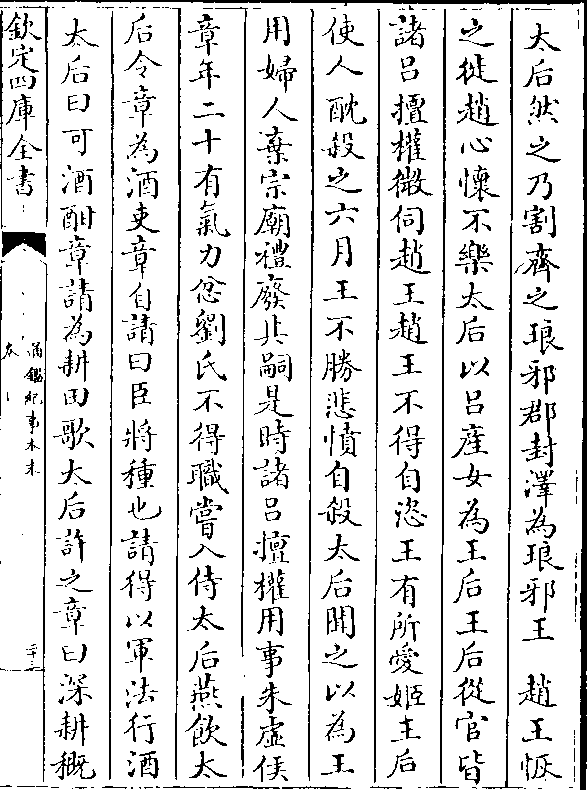 太后然之乃割齊之琅邪郡封澤為琅邪王　趙王恢
之徙趙心懷不樂太后以吕産女為王后王后從官皆
諸吕擅權微伺趙王趙王不得自恣王有所愛姬王后
使人酖殺之六月王不勝悲憤自殺太后聞之以為王
用婦人棄宗廟禮廢其嗣是時諸吕擅權用事朱虚侯
章年二十有氣力忿劉氏不得職嘗入侍太后燕飲太
后令章為酒吏章自請曰臣將種也請得以軍法行酒
太后曰可酒酣章請為耕田歌太后許之章曰深耕穊
欽定四庫全書
通鑑紀事本末